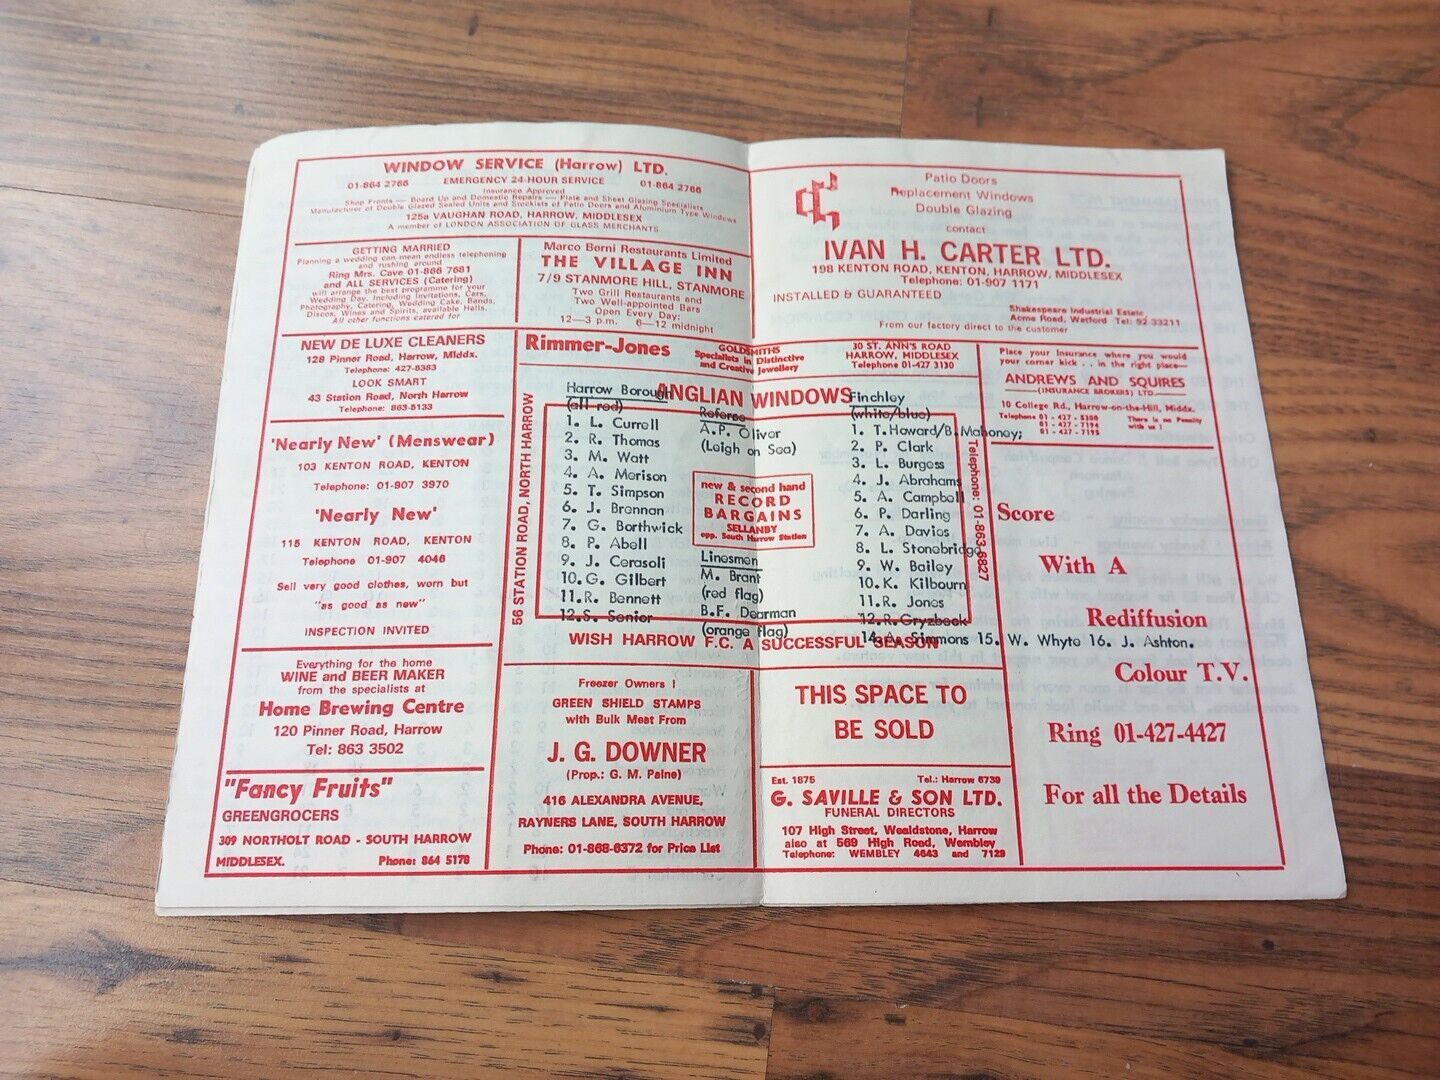 WINDOW SERVICE (Harrow) LTD.
01-864 2766 EMERGENCY 24-HOUR SERVICE 01-864 2766
Insurance Approved
Shop Fronts — Board Up and Domestic Repairs — Plate and Sheet Glazing Specialists
Manufacturer of Double Glazed Sealed Units and Stockists of Patio Doors and Aluminium Type Windows
125a VAUGHAN ROAD, HARROW, MIDDLESEX
A member of LONDON ASSOCIATION OF GLASS MERCHANTS
GETTING MARRIED
Planning a wedding can mean endless telephoning
and rushing around
Ring Mrs. Cave 01-866 7681
and ALL SERVICES (Catering)
will arrange the best programme for your
Wedding Day. Including Invitations, Cars,
Photography, Catering, Wedding Cake, Bands,
Discos, Wines and Spirits, available Halls.
All other functions catered for
Marco Borni Restaurants Limited
THE VILLAGE INN
7/9 STANMORE HILL, STANMORE
Two Grill Restaurants and
Two Well-appointed Bars
Open Every Day:
12—3 p.m. 6—12 midnight
Patio Doors
Replacement Windows
Double Glazing
contact
IVAN H. CARTER LTD.
198 KENTON ROAD, KENTON, HARROW, MIDDLESEX
Telephone: 01-907 1171
INSTALLED & GUARANTEED
Shakespeare Industrial Estate
Acme Road, Watford Tel: 92-33211
From our factory direct to the customer
NEW DE LUXE CLEANERS
128 Pinner Road, Harrow, Middx.
Telephone: 427-8383
LOOK SMART
43 Station Road, North Harrow
Telephone: 863-5133
Rimmer-Jones
GOLDSMITHS
Specialists in Distinctive
and Creative Jewellery
30 ST. ANN'S ROAD
HARROW, MIDDLESEX
Telephone 01-427 3130
Place your Insurance where you would
your corner kick . . in the right place—
ANDREWS AND SQUIRES
—(INSURANCE BROKERS) LTD.—
10 College Rd., Harrow-on-the-Hill, Middx.
Telephone 01 - 427 - 5300
01 - 427 - 7194
01 - 427 - 7195
There is no Penalty
with us !
'Nearly New' (Menswear)
103 KENTON ROAD, KENTON
Telephone: 01-907 3970
'Nearly New'
115 KENTON ROAD, KENTON
Telephone 01-907 4046
Sell very good clothes, worn but
"as good as new"
INSPECTION INVITED
56 STATION ROAD, NORTH HARROW
ANGLIAN WINDOWS
Telephone: 01-863-6827
Harrow Borough
(all red)
1. L. Currell
2. R. Thomas
3. M. Watt
4. A. Merison
5. T. Simpson
6. J. Brennan
7. G. Borthwick
8. P. Abell
9. J. Cerasoli
10. G. Gilbert
11. R. Bennett
12. S. Senior
Referee
A.P. Oliver
(Leigh on Sea)
new & second hand
RECORD
BARGAINS
SELLANBY
opp. South Harrow Station
Linesmen
M. Brant
(red flag)
B.F. Dearman
(orange flag)
Finchley
(white/blue)
1. T. Howard/B. Mahoney;
2. P. Clark
3. L. Burgess
4. J. Abrahams
5. A. Campbell
6. P. Darling
7. A. Davies
8. L. Stonebridge
9. W. Bailey
10. K. Kilbourn
11. R. Jones
12. R. Gryzbeck
14. A. Simmons 15. W. Whyte 16. J. Ashton.
WISH HARROW F.C. A SUCCESSFUL SEASON
Score
With A
Rediffusion
Colour T.V.
Ring 01-427-4427
For all the Details
Everything for the home
WINE and BEER MAKER
from the specialists at
Home Brewing Centre
120 Pinner Road, Harrow
Tel: 863 3502
"Fancy Fruits"
GREENGROCERS
309 NORTHOLT ROAD - SOUTH HARROW
MIDDLESEX. Phone: 864 5178
Freezer Owners !
GREEN SHIELD STAMPS
with Bulk Meat From
J. G. DOWNER
(Prop.: G. M. Paine)
416 ALEXANDRA AVENUE,
RAYNERS LANE, SOUTH HARROW
Phone: 01-868-6372 for Price List
THIS SPACE TO
BE SOLD
Est. 1875 Tel.: Harrow 6739
G. SAVILLE & SON LTD.
FUNERAL DIRECTORS
107 High Street, Wealdstone, Harrow
also at 569 High Road, Wembley
Telephone: WEMBLEY 4643 and 7129